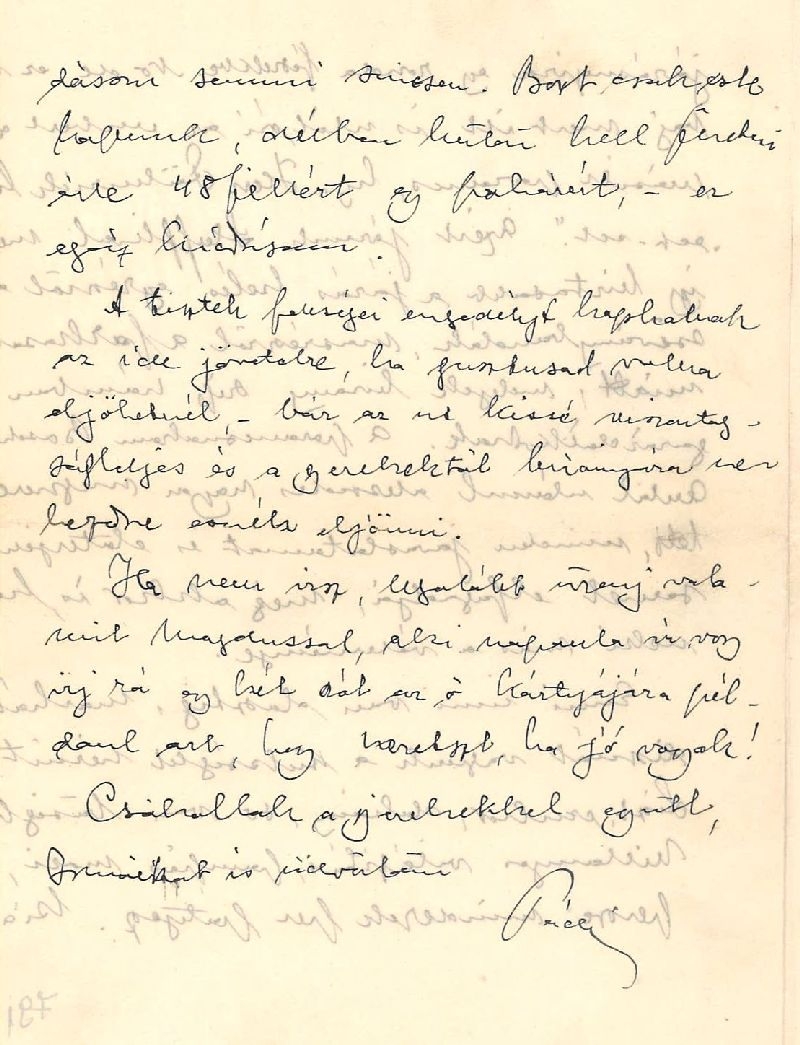 dásom semmi sincsen. Bort csak este
kapunk, délben külön kell fizetni
érte 48 fillért egy pohárért, – ez
egész kiadásom.
A tisztek feleségei engedélyt kaphatnak
az ide jövetelre, ha gusztusod volna
eljöhetnél, – bár az út kissé viszontag-
ságteljes és a gyerekektől bizonyára ne-
hezedre esnék eljönni.
Ha nem irsz, legalább üzenj vala-
mit Magdussal, aki naponta ír vagy
irj rá egy két szót az ő kártyájára pél-
dául azt, hogy szeretsz, ha jó vagyok!
Csókollak a gyerekekkel együtt,
is üdvözlöm
791